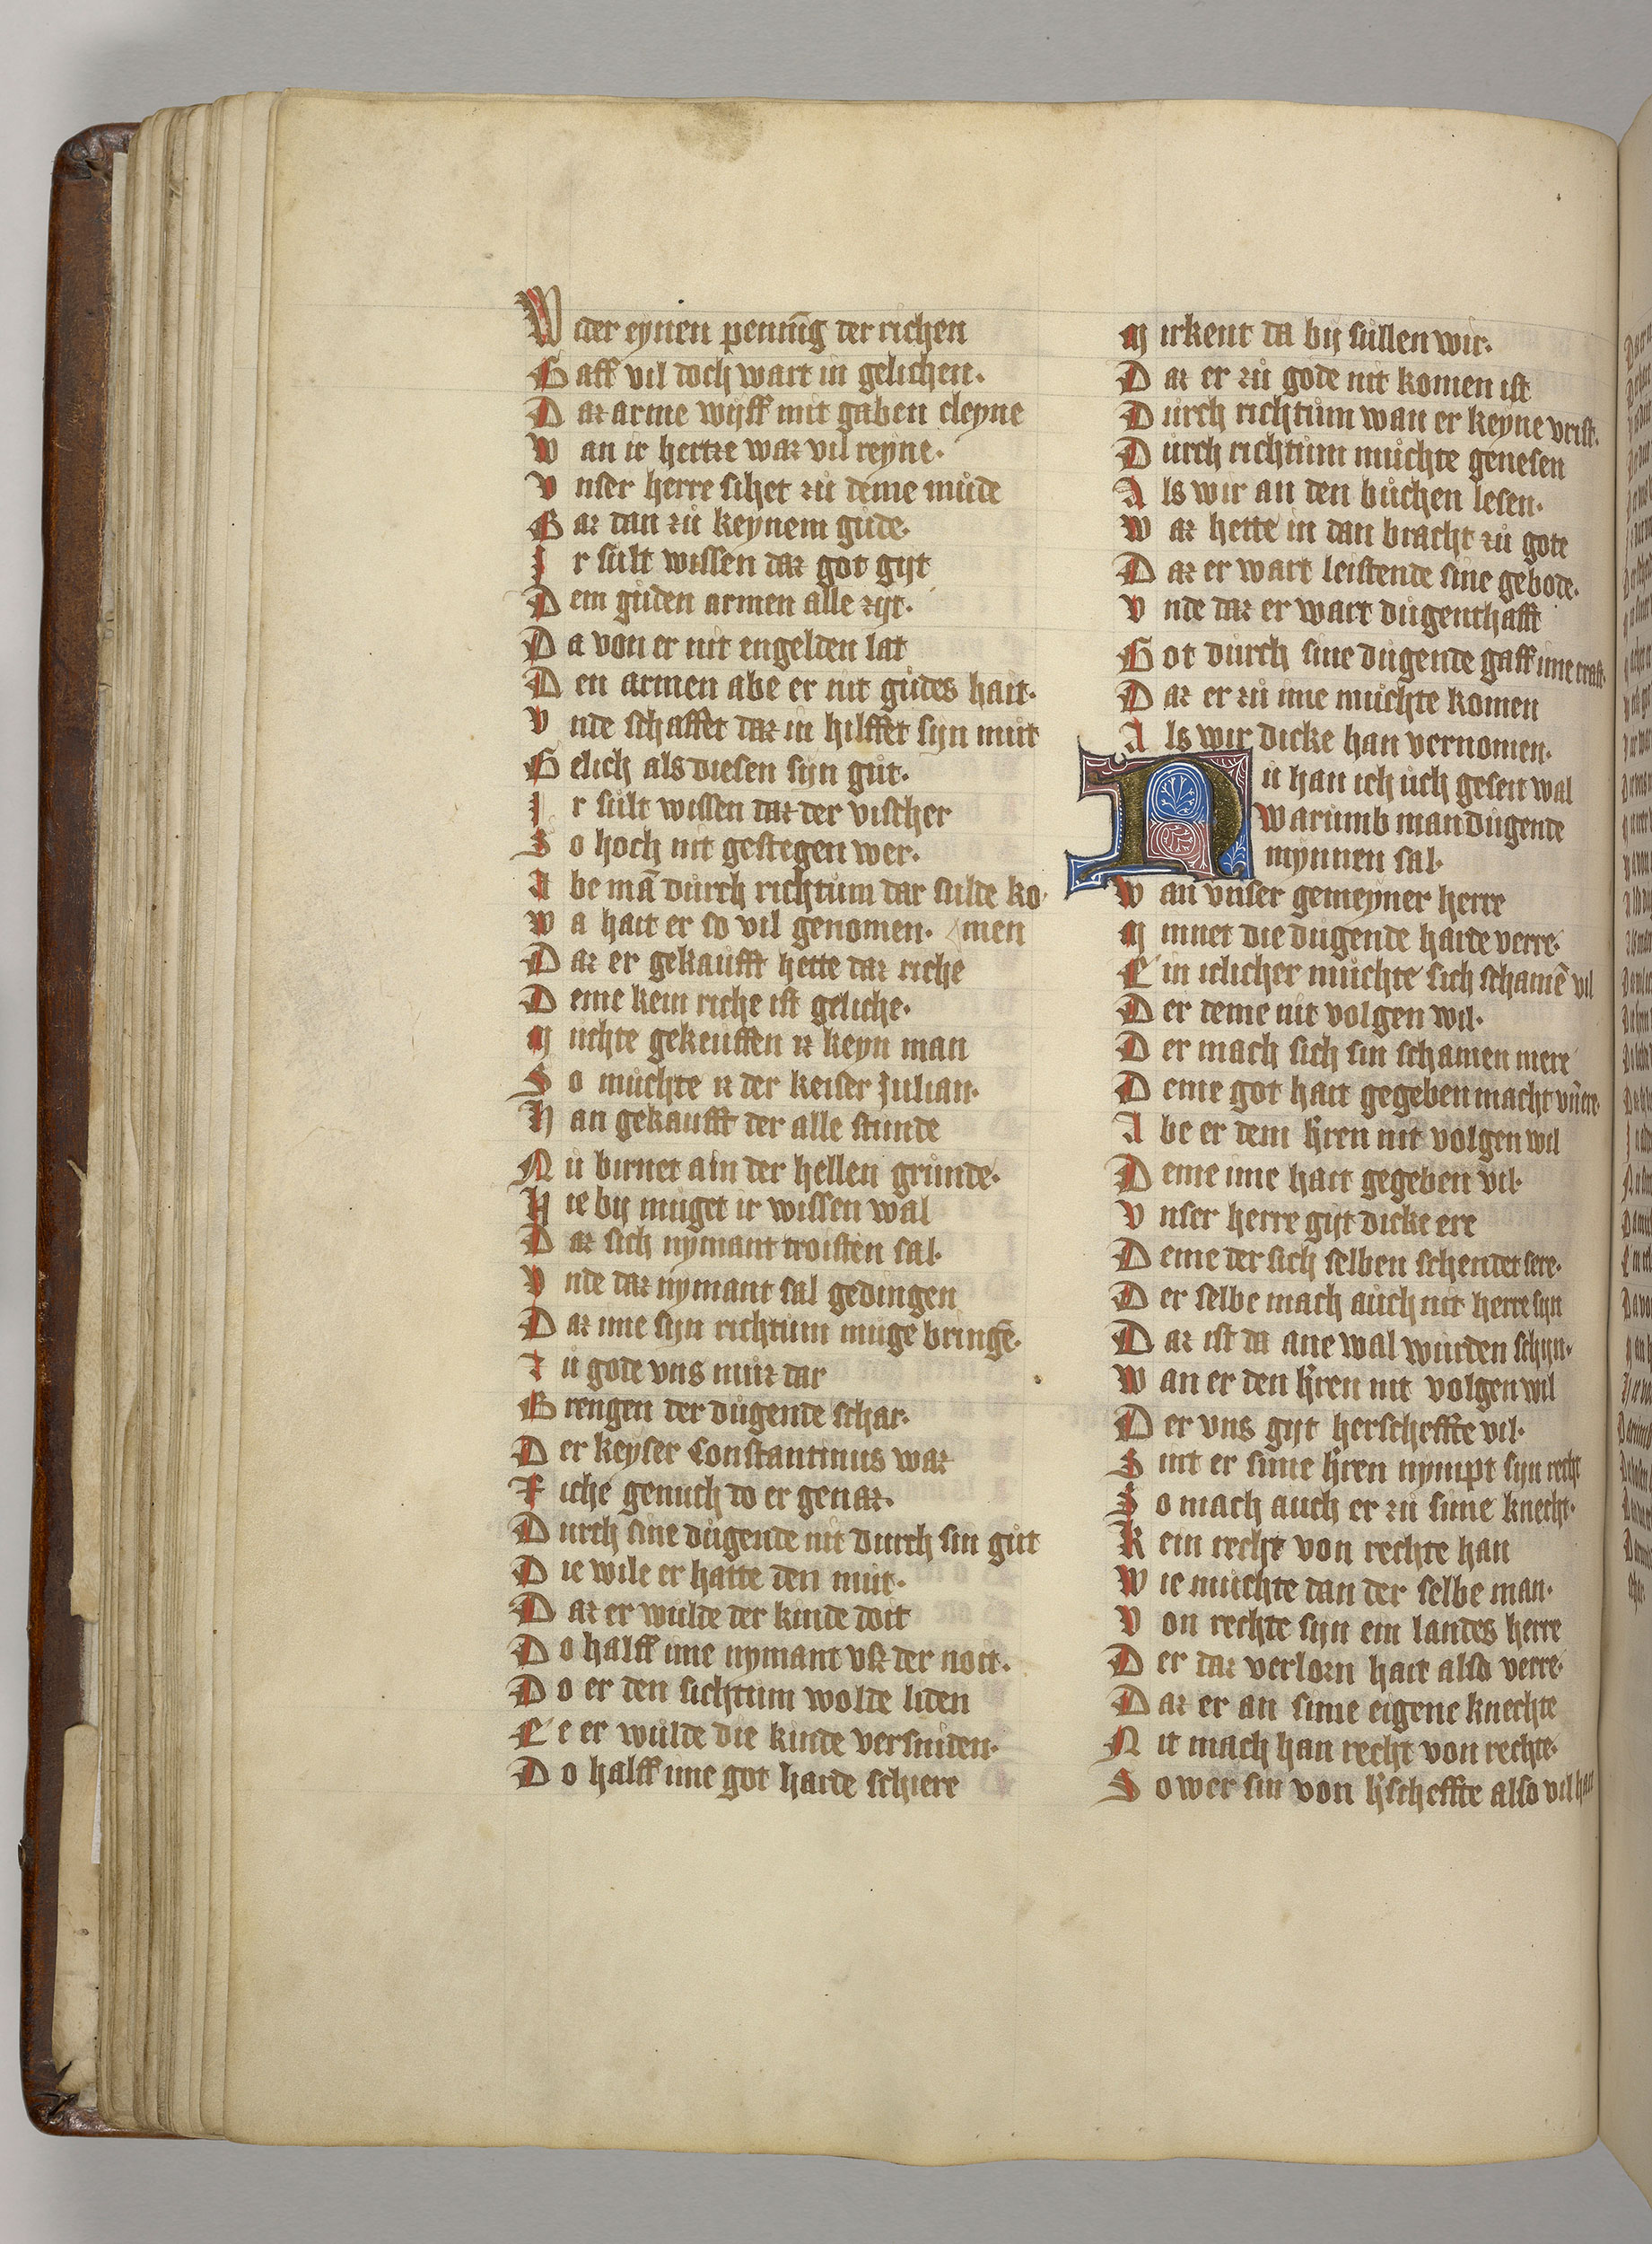 Wider eynen pennīg der richen
Gaff vil doch wart in gelichen.
Daz arme wijff mit gaben cleyne
Wan ir hertze waz vil reyne.
Vnser herre sihet zů deme můde
Baz dan zů keynem gůde.
Ir sült wissen daz got gijt
Dem gůden armen alle zijt.
Da von er nit engelden lat
Den armen abe er nit gůdes hait.
Vnde schaffet daz in hilffet syn můt
Gelich als diesen sijn gůt.
Ir sült wissen daz der vischer
So hoch nit gestegen wer.
Abe mā durch richtům dar sulde ko-
Wa hait er so vil genomen. men
Daz er gekaüfft hette daz riche
Deme kein riche ist geliche.
Můchte gekeuffen iz keyn man
So můchte iz der keiser Julian.
Han gekaufft der alle stunde
Nü birnet ain der hellen grunde.
Hie bij müget ir wissen wal
Daz sich nymant troisten sal.
Vnde daz nymant sal gedingen
Daz ime sijn richtům müge bringē.
Zů gode vns můz dar
Brengen der důgende schar.
Der keyser Constantinus waz
Siche genuch do er genaz.
Durch sine důgende nit durch sin gůt
Die wile er hatte den můt.
Daz er wulde der kinde doit
Do halff ime nymant vß der noit.
Do er den sichtum wolde liden
Ee er wulde die kinde versniden.
Do halff ime got harde schiere
Mirkent da bij süllen wir.
Daz er zů gode nit komen ist
Durch richtům wan er keyne vrist.
Durch richtům můchte genesen
Als wir an den bůchen lesen.
Waz hette in dan bracht zů gote
Daz er wart leistende sine gebode.
Vnde daz er wart důgenthafft
Got durch sine důgende gaff ime craft.
Daz er zů ime můchte komen
Als wir dicke han vernomen.
Nü han ich üch geseit wal
Warümb man důgende
mynnen sal.
Wan vnser gemeyner herre
Minnet die důgende harde verre.
Ein iclicher můchte sich schamē vil
Der deme nit volgen wil.
Der mach sich sin schamen mere
Deme got hait gegeben macht vn̄ ere.
Abe er dem h̄ren nit volgen wil
Deme ime hait gegeben vil.
Vnser herre gijt dicke ere
Deme der sich selben schendet sere.
Der selbe mach auch nit herre sijn
Daz ist da ane wal wurden schijn.
Wan er den h̄ren nit volgen wil
Der vns gijt herscheffte vil.
Sint er sime h̄ren nympt sijn recht
So mach auch er zů sime knecht.
Kein recht von rechte han
Wie můchte dan der selbe man.
Von rechte sijn ein landes herre
Der daz verlorn hait also verre.
Daz er an sime eigene knechte
Nit mach han recht von rechte.
So wer sin von h̄scheffte also vil hait